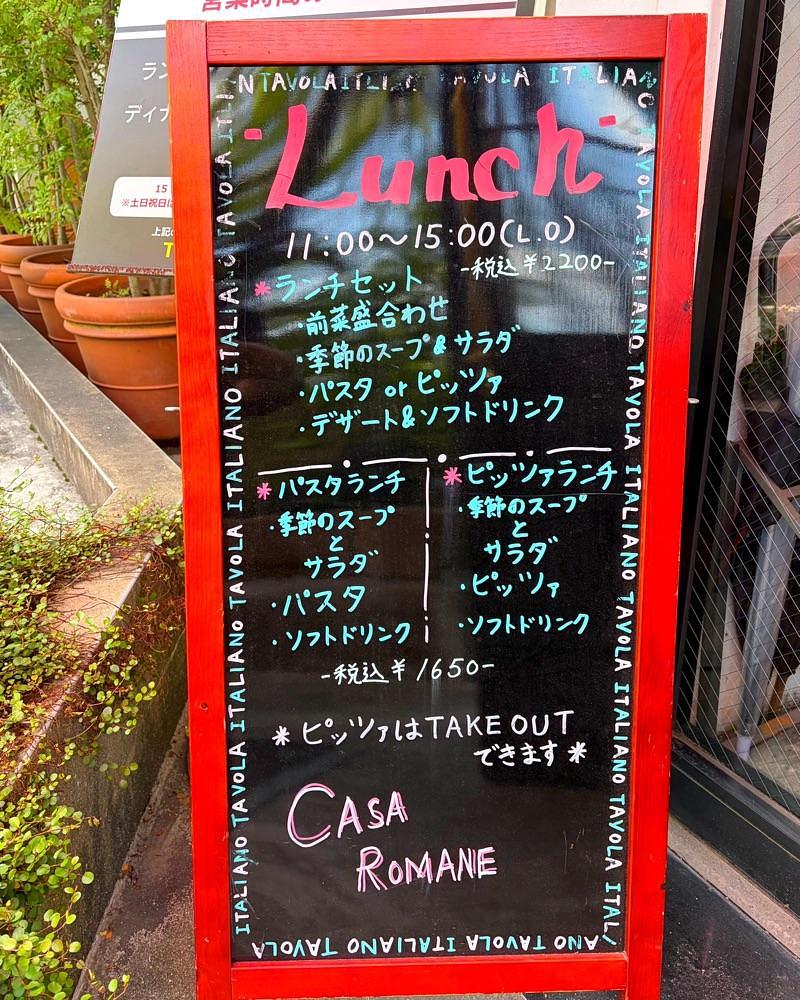 営業時間の
ラン
ディナ
15
※土日祝日は
上記の
T
N TAVOLA ITALIA
-Lunch-
11:00〜15:00(L.O)
-税込¥2200-
*ランチセット
・前菜盛合わせ
・季節のスープ&サラダ
・パスタ or ピッツァ
・デザート&ソフトドリンク
*パスタランチ
・季節のスープ
と
サラダ
・パスタ
・ソフトドリンク
*ピッツァランチ
・季節のスープ
と
サラダ
・ピッツァ
・ソフトドリンク
-税込¥1650-
*ピッツァはTAKE OUT
できます*
CASA
ROMANE
ITALIANO TAVOLA ITALIANO TAVOLA ITALIANO TAVOLA ITALIANO TAVOLA IT
TAVOLA ITALIANO TAVOLA ITALIANO TAVOLA ITALIANO TAVOLA ITAL
ANO TAVOLA ITALIANO TAVOLA ITALIANO TAVOLA